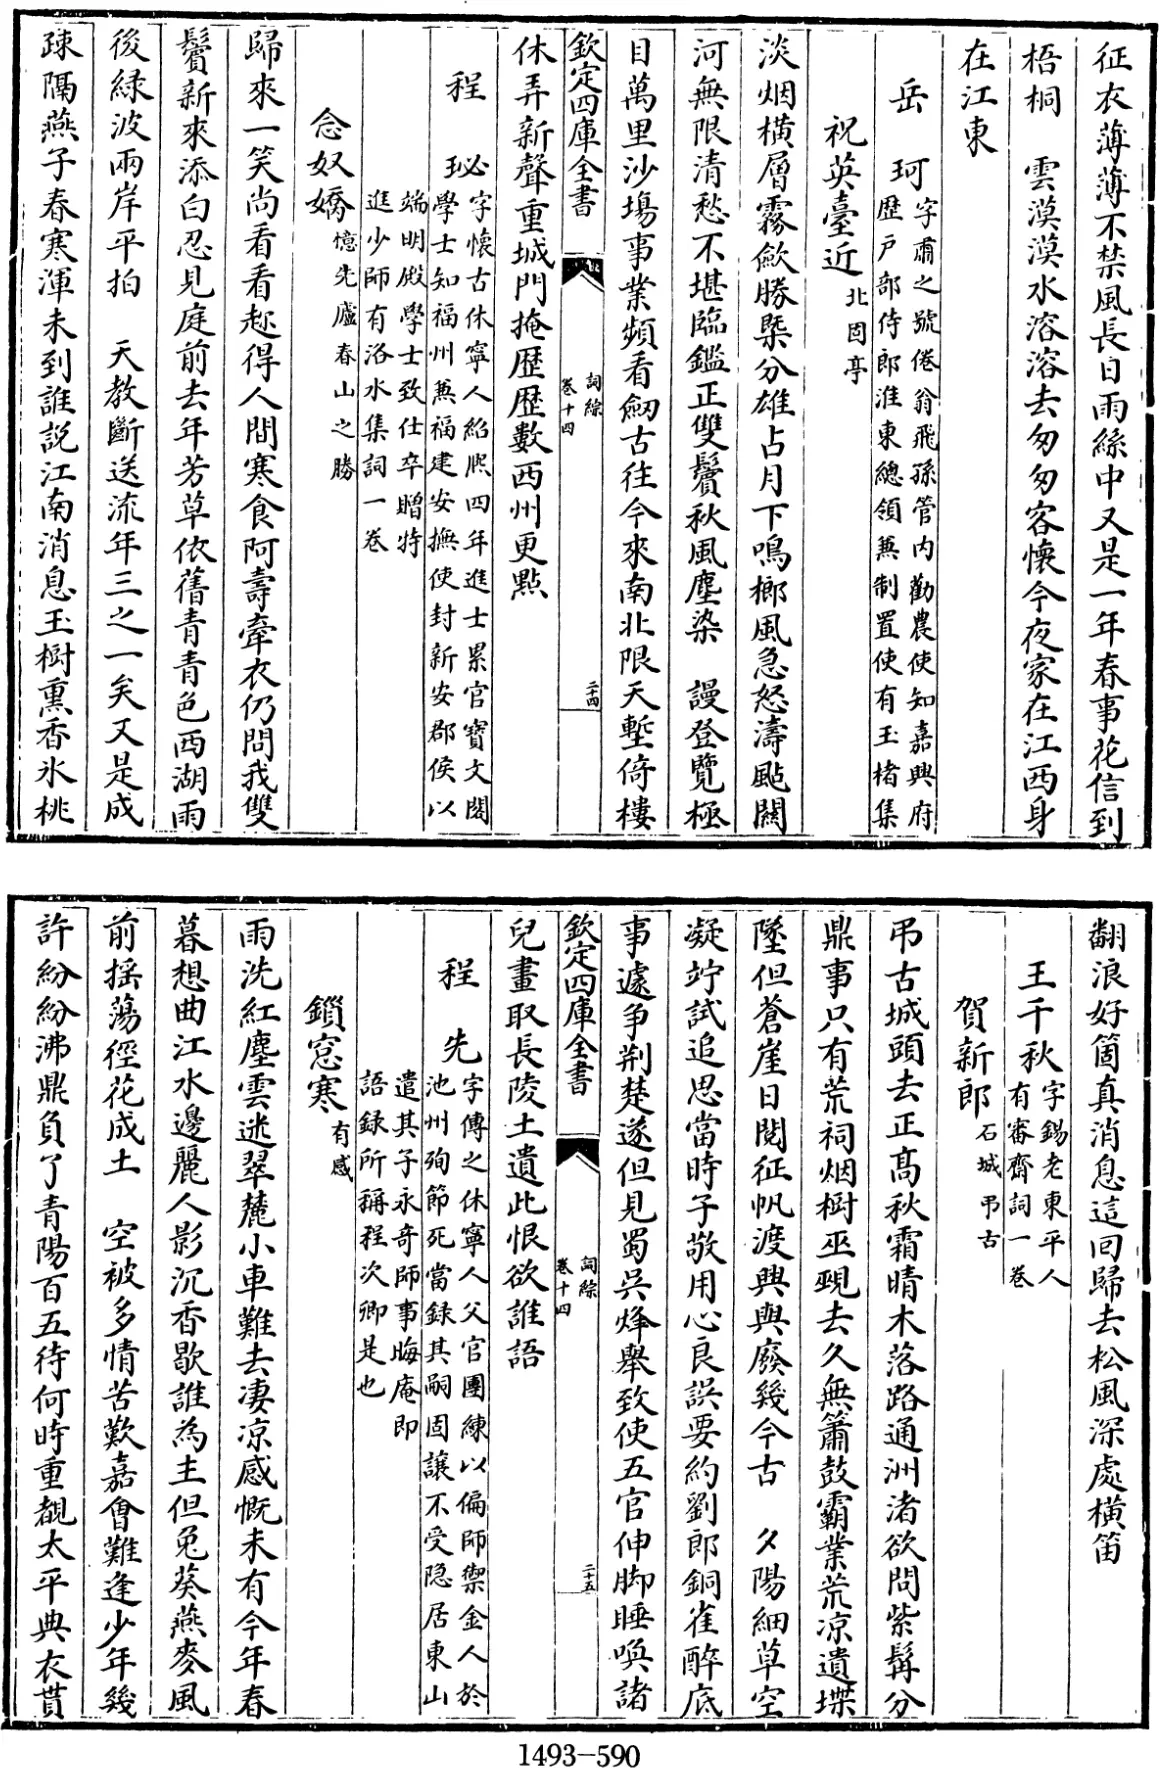 征衣薄薄不禁風長日雨絲中又是一年春事花信到
梧桐　雲漠漠水溶溶去匆匆客懷今夜家在江西身
在江東
岳　珂字肅之號倦翁飛孫管内勸農使知嘉興府
歷戸部侍郎淮東總領兼制置使有玉楮集
祝英臺近北固亭
淡烟横層霧歛勝槩分雄占月下鳴榔風急怒濤颭關
河無限清愁不堪臨鑑正雙鬢秋風塵染　謾登覽極
目萬里沙塲事業頻看劒古往今來南北限天塹倚樓
欽定四庫全書
詞綜
卷十四
二十四
休弄新聲重城門掩歷歷數西州更點
程　珌字懷古休寧人紹熙四年進士累官寶文閣
學士知福州兼福建安撫使封新安郡侯以
端明殿學士致仕卒贈特
進少師有洛水集詞一卷
念奴嬌憶先廬春山之勝
歸來一笑尚看看趂得人間寒食阿壽牽衣仍問我雙
鬢新來添白忍見庭前去年芳草依舊青青色西湖雨
後緑波兩岸平拍　天教斷送流年三之一矣又是成
疎隔燕子春寒渾未到誰説江南消息玉樹熏香氷桃
翻浪好箇真消息這回歸去松風深處横笛
王千秋字錫老東平人
有審齋詞一卷
賀新郎石城弔古
弔古城頭去正髙秋霜晴木落路通洲渚欲問紫髯分
鼎事只有荒祠烟樹巫覡去久無簫鼓霸業荒凉遺堞
墜但蒼崖日閲征帆渡興與廢幾今古　夕陽細草空
凝竚試追思當時子敬用心良誤要約劉郎銅雀醉底
事遽争荆楚遂但見蜀吳烽舉致使五官伸脚睡喚諸
欽定四庫全書
詞綜
卷十四
二十五
兒晝取長陵土遺此恨欲誰語
程　先字傳之休寧人父官團練以偏師禦金人於
池州殉節死當録其嗣固讓不受隐居東山
遣其子永奇師事晦庵即
語録所稱程次卿是也
鎻窓寒有感
雨洗紅塵雲迷翠麓小車難去凄凉感慨未有今年春
暮想曲江水邊麗人影沉香歇誰為主但兔葵燕麥風
前揺蕩徑花成土　空被多情苦歎嘉會難逢少年幾
許紛紛沸鼎負了青陽百五待何時重覩太平典衣貰
1493—590